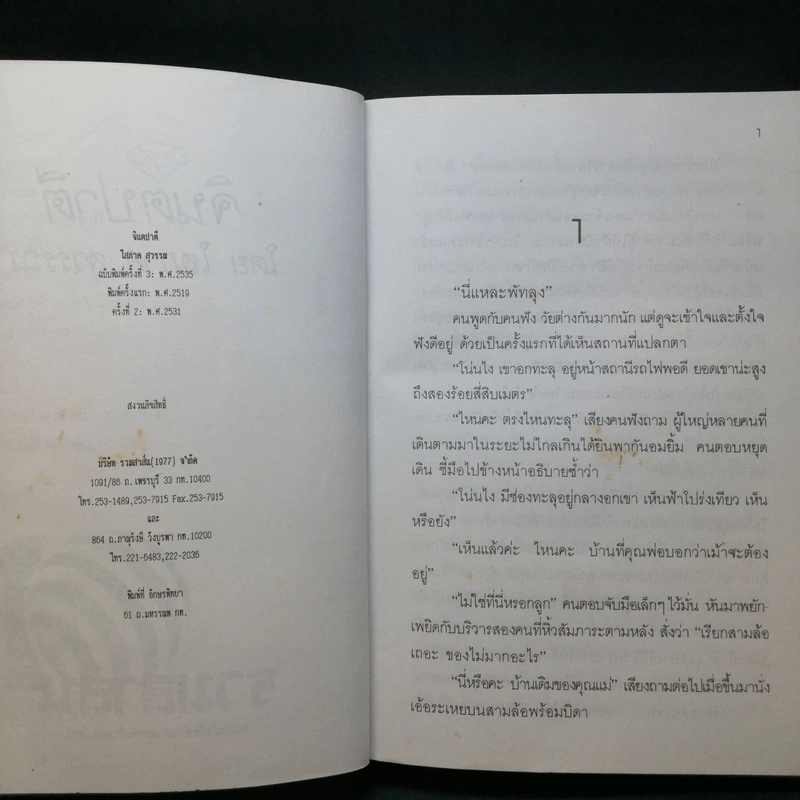 จินตปาตี
โสภาค สุวรรณ
ฉบับพิมพ์ครั้งที่ 3: พ.ศ.2535
พิมพ์ครั้งแรก: พ.ศ.2519
ครั้งที่ 2: พ.ศ.2531
สงวนลิขสิทธิ์
บริษัท รวมสาส์น(1977) จำกัด
1091/86 ถ.เพชรบุรี 33 กท.10400
โทร.253-1489,253-7915 Fax.253-7915
และ
864 ถ.ภาณุรังษี วังบูรพา กท.10200
โทร.221-6483,222-2036
พิมพ์ที่ อักษรพิทยา
61 ถ.มหรรณพ กท.
๑
๑
“นี่แหละพัทลุง”
คนพูดกับคนฟัง วัยต่างกันมากนัก แต่ดูจะเข้าใจและตั้งใจ
ฟังดีอยู่ ด้วยเป็นครั้งแรกที่ได้เห็นสถานที่แปลกตา
“โน่นไง เขาอกทะลุ อยู่หน้าสถานีรถไฟพอดี ยอดเขาน่ะสูง
ถึงสองร้อยสี่สิบเมตร”
“ไหนคะ ตรงไหนทะลุ” เสียงคนฟังถาม ผู้ใหญ่หลายคนที่
เดินตามมาในระยะไม่ไกลเกินได้ยินพากันอมยิ้ม คนตอบหยุด
เดิน ชี้มือไปข้างหน้าอธิบายซ้ำว่า
“โน่นไง มีช่องทะลุอยู่กลางอกเขา เห็นฟ้าโปร่งเทียว เห็น
หรือยัง”
“เห็นแล้วค่ะ ไหนคะ บ้านที่คุณพ่อบอกว่าเม้าจะต้อง
อยู่”
“ไม่ใช่ที่นี่หรอกลูก” คนตอบจับมือเล็กๆ ไว้มั่น หันมาพยัก-
เพยิดกับบริวารสองคนที่หิ้วสัมภาระตามหลัง สั่งว่า “เรียกสามล้อ
เถอะ ของไม่มากอะไร”
“นี่หรือคะ บ้านเดิมของคุณแม่” เสียงถามต่อไปเมื่อขึ้นมานั่ง
เอ้อระเหยบนสามล้อพร้อมบิดา